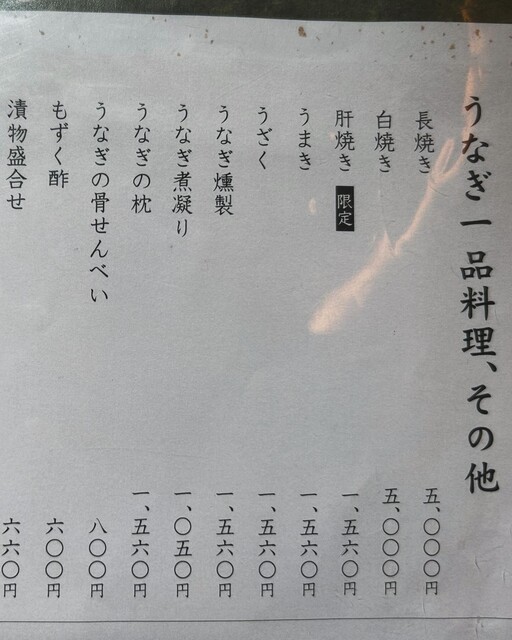 うなぎ一品料理、その他
長焼き 五、〇〇〇円
白焼き 五、〇〇〇円
肝焼き 限定 一、五六〇円
うまき 一、五六〇円
うざく 一、五六〇円
うなぎ燻製 一、五六〇円
うなぎ煮凝り 一、〇五〇円
うなぎの枕 一、五六〇円
うなぎの骨せんべい 八〇〇円
もずく酢 六〇〇円
漬物盛合せ 六六〇円